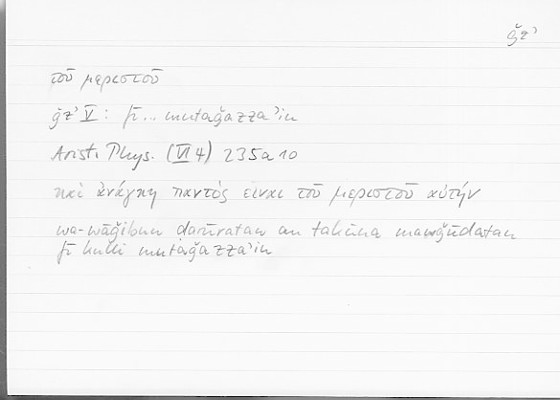 ǧzʾ
τοῦ μεριστοῦ
ǧzʾ V : fī ... mutaǧazzaʾin
Arist. Phys. (VI 4) 235a10
καὶ ἀνάγκη παντὸς εἶναι τοῦ μεριστοῦ αὐτήν
wa-wāǧibun ḍarūratan an takūna mawǧūdatan
fī kulli mutaǧazzaʾin